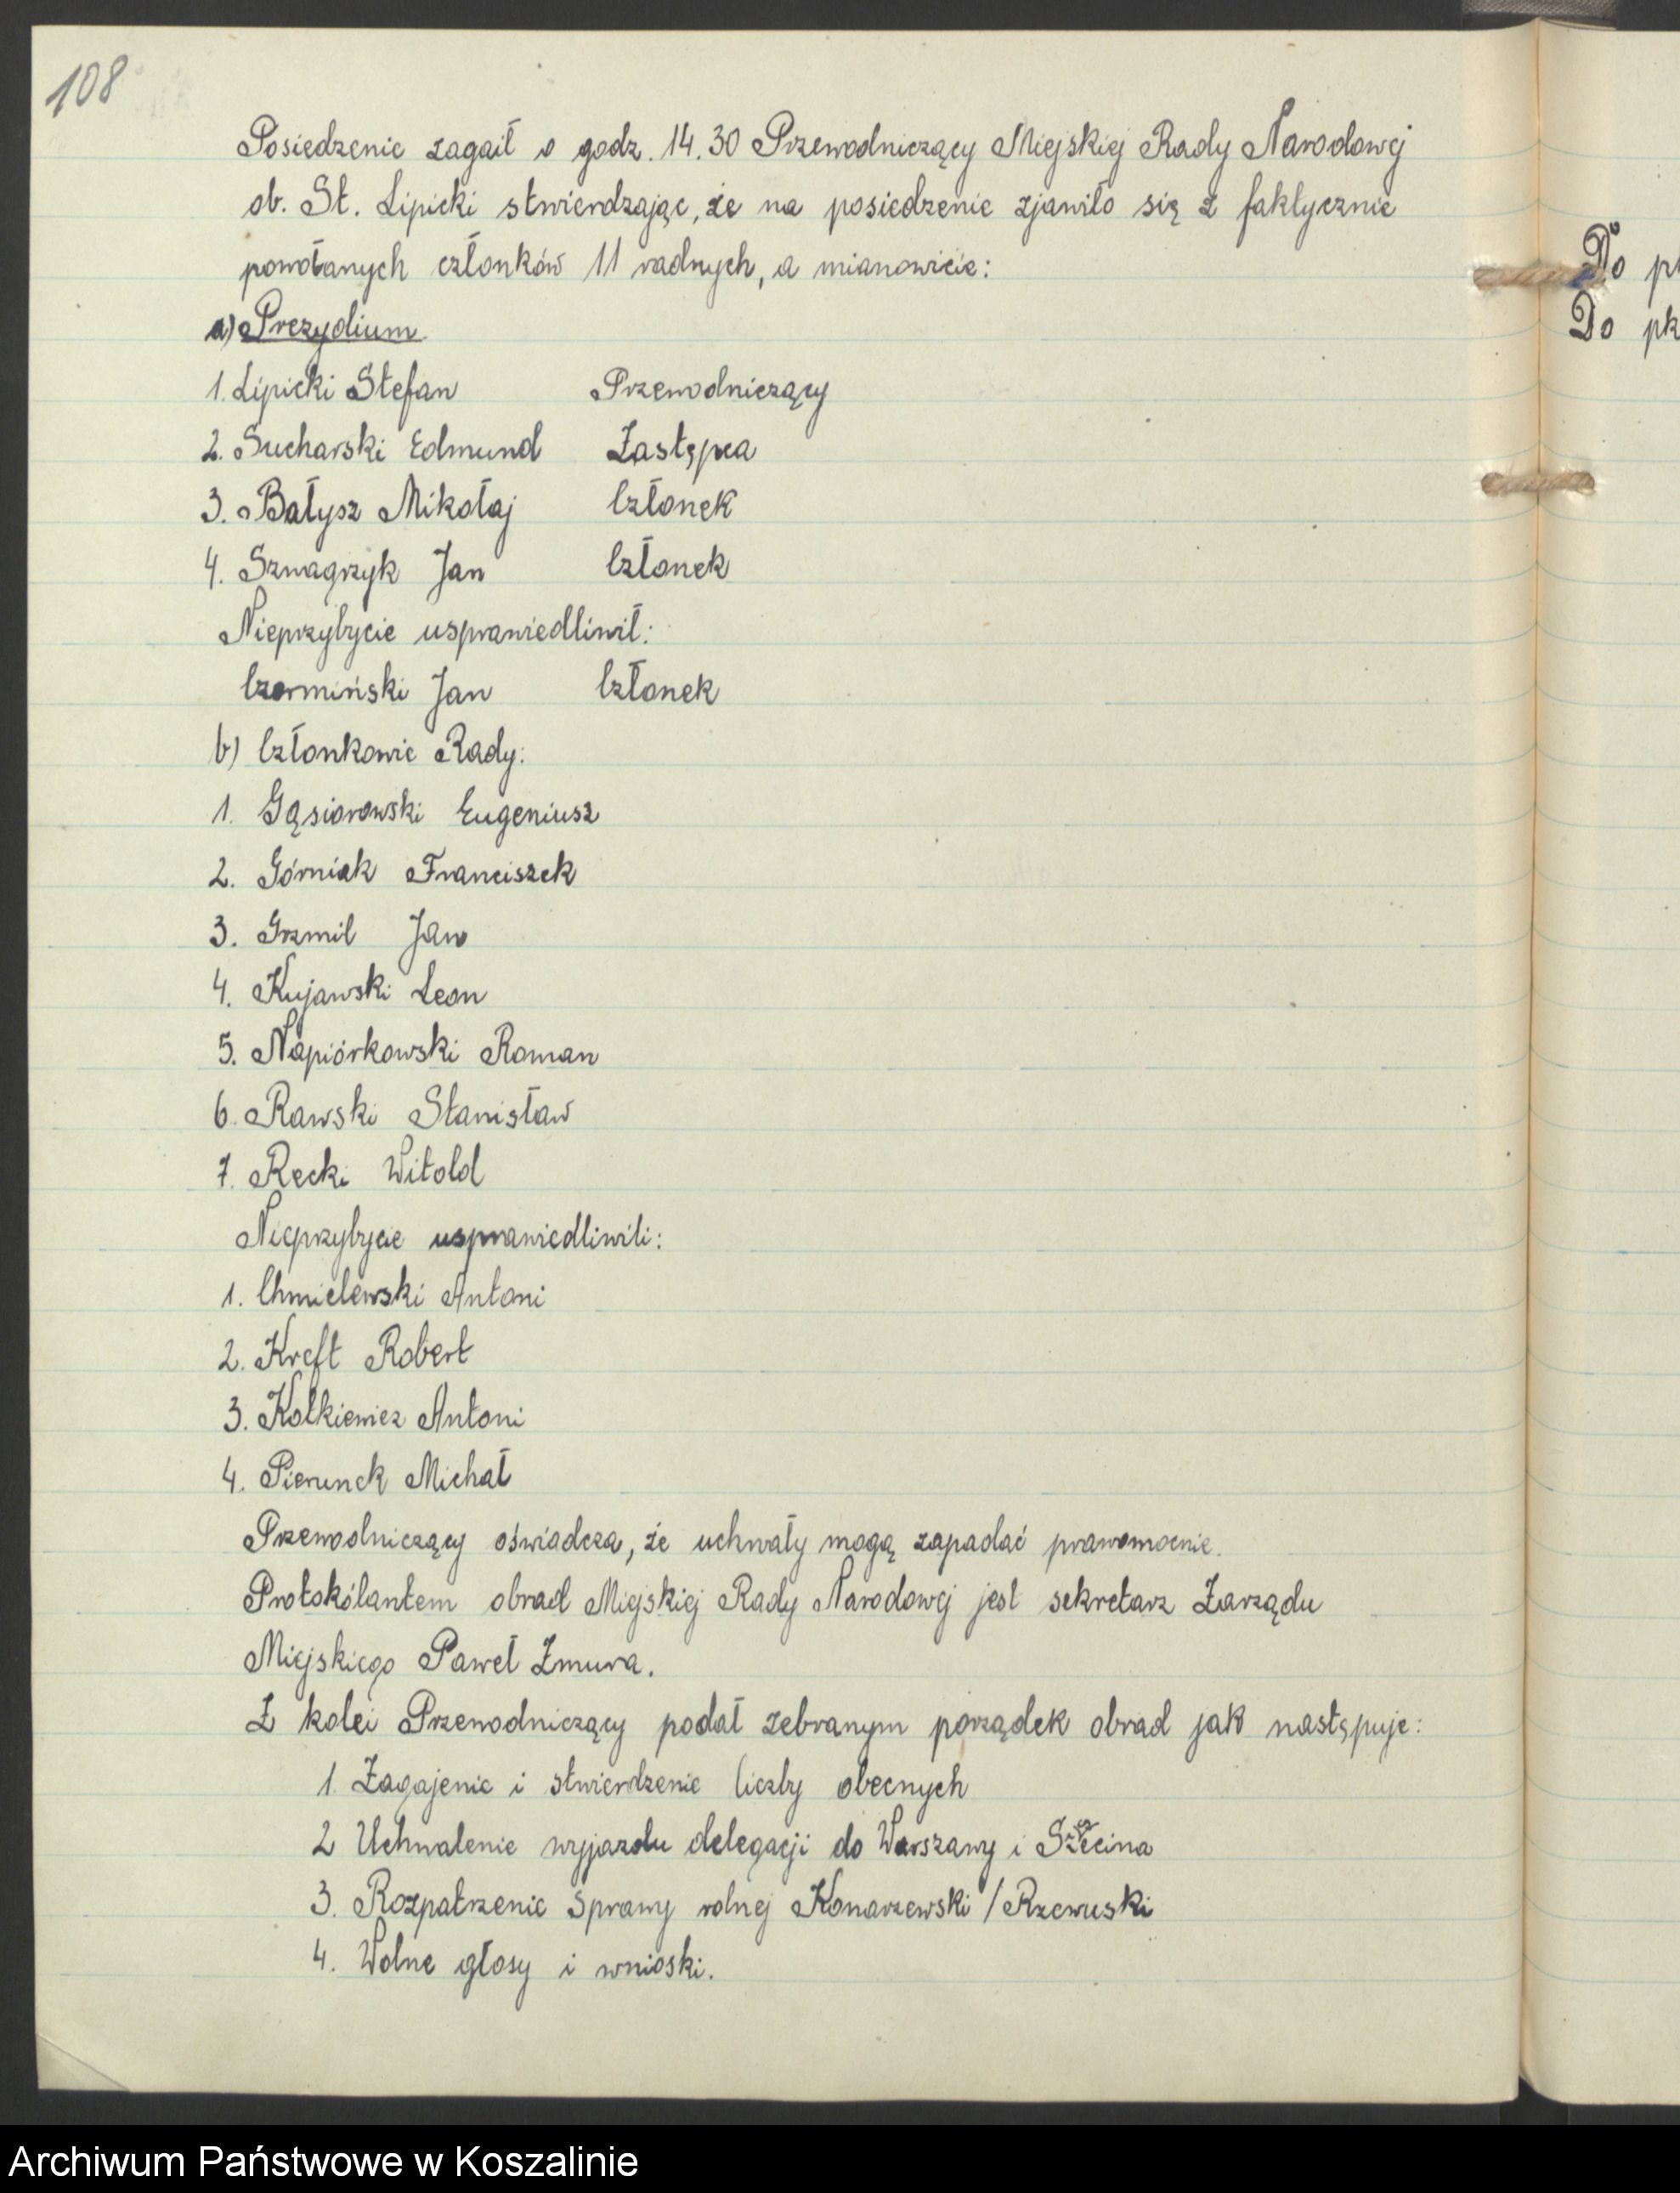 108
Posiedzenie zagaił o godz. 14.30 Przewodniczący Miejskiej Rady Narodowej
ob. St. Lipicki stwierdzając, że na posiedzenie zjawiło się z faktycznie
powołanych członków 11 radnych, a mianowicie:
a) Prezydium
1. Lipicki Stefan Przewodniczący
2. Sucharski Edmund Zastępca
3. Bałysz Mikołaj Członek
4. Szwagrzyk Jan Członek
Nieprzybycie usprawiedliwił:
Czermiński Jan Członek
b) Członkowie Rady:
1. Gąsiorowski Eugeniusz
2. Górniak Franciszek
3. Grzmil Jan
4. Kujawski Leon
5. Napiórkowski Roman
6. Rawski Stanisław
7. Recki Witold
Nieprzybycie usprawiedliwili:
1. Chmielewski Antoni
2. Kreft Robert
3. Kotkiewicz Antoni
4. Pierunek Michał
Przewodniczący oświadcza, że uchwały mogą zapadać prawomocnie.
Protokólantem obrad Miejskiej Rady Narodowej jest sekretarz Zarządu
Miejskiego Paweł Zmura.
Z kolei Przewodniczący podał zebranym porządek obrad jak następuje:
1. Zagajenie i stwierdzenie liczby obecnych
2 Uchwalenie wyjazdu delegacji do Warszawy i Szczecina
3. Rozpatrzenie sprawy rolnej Konarzewski / Rzewuski
4. Wolne głosy i wnioski.
Do
Do pk
Archiwum Państwowe w Koszalinie